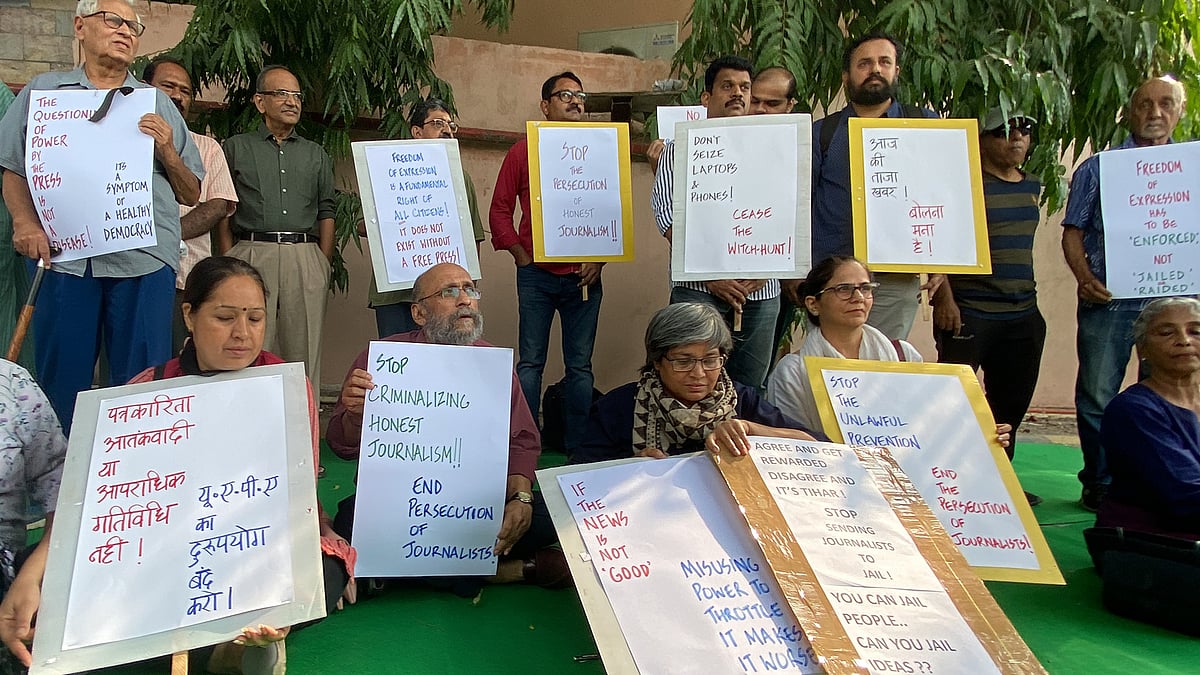 THE
QUESTIONI
OF
POWER
BY
THE
PRESS
IS
NOT
A
DISEASE!
ITS
A
SYMPTOM
OF
A HEALTHY
DEMOCRACY
FREEDOM
OF EXPRESSION
IS A FUNDAMENTAL
RIGHT OF
ALL CITIZENS!
IT DOES NOT
EXIST WITHOUT
A FREE PRESS!
STOP
THE
PERSECUTION
OF HONEST
JOURNALISM!!
NO
DON'T
SEIZE
LAPTOPS
&
PHONES!
CEASE
THE
WITCH-HUNT!
आज
की
ताजा
खबर!
बोलना
मना
है!
FREEDOM
OF
EXPRESSION
HAS
TO BE
'ENFORCED'
NOT
'JAILED' or
'RAIDED'
पत्रकारिता
आतंकवादी
या
आपराधिक
गतिविधि
नहीं!
यू.ए.पी.ए
का
दुरुपयोग
बंद
करो।
STOP
CRIMINALIZING
HONEST
JOURNALISM!!
END
PERSECUTION
OF
JOURNALISTS
IF
THE
NEWS
IS
NOT
'GOOD'
MISUSING
POWER TO
THROTTLE
IT MAKES
IT WORSE
AGREE AND GET
REWARDED
DISAGREE AND
IT'S TIHAR!
STOP
SENDING
JOURNALISTS
TO
JAIL!
YOU CAN JAIL
PEOPLE..
CAN YOU JAIL
IDEAS??
STOP
THE
UNLAWFUL
PREVENTION
END
THE
PERSECUTION
OF
JOURNALISTS!